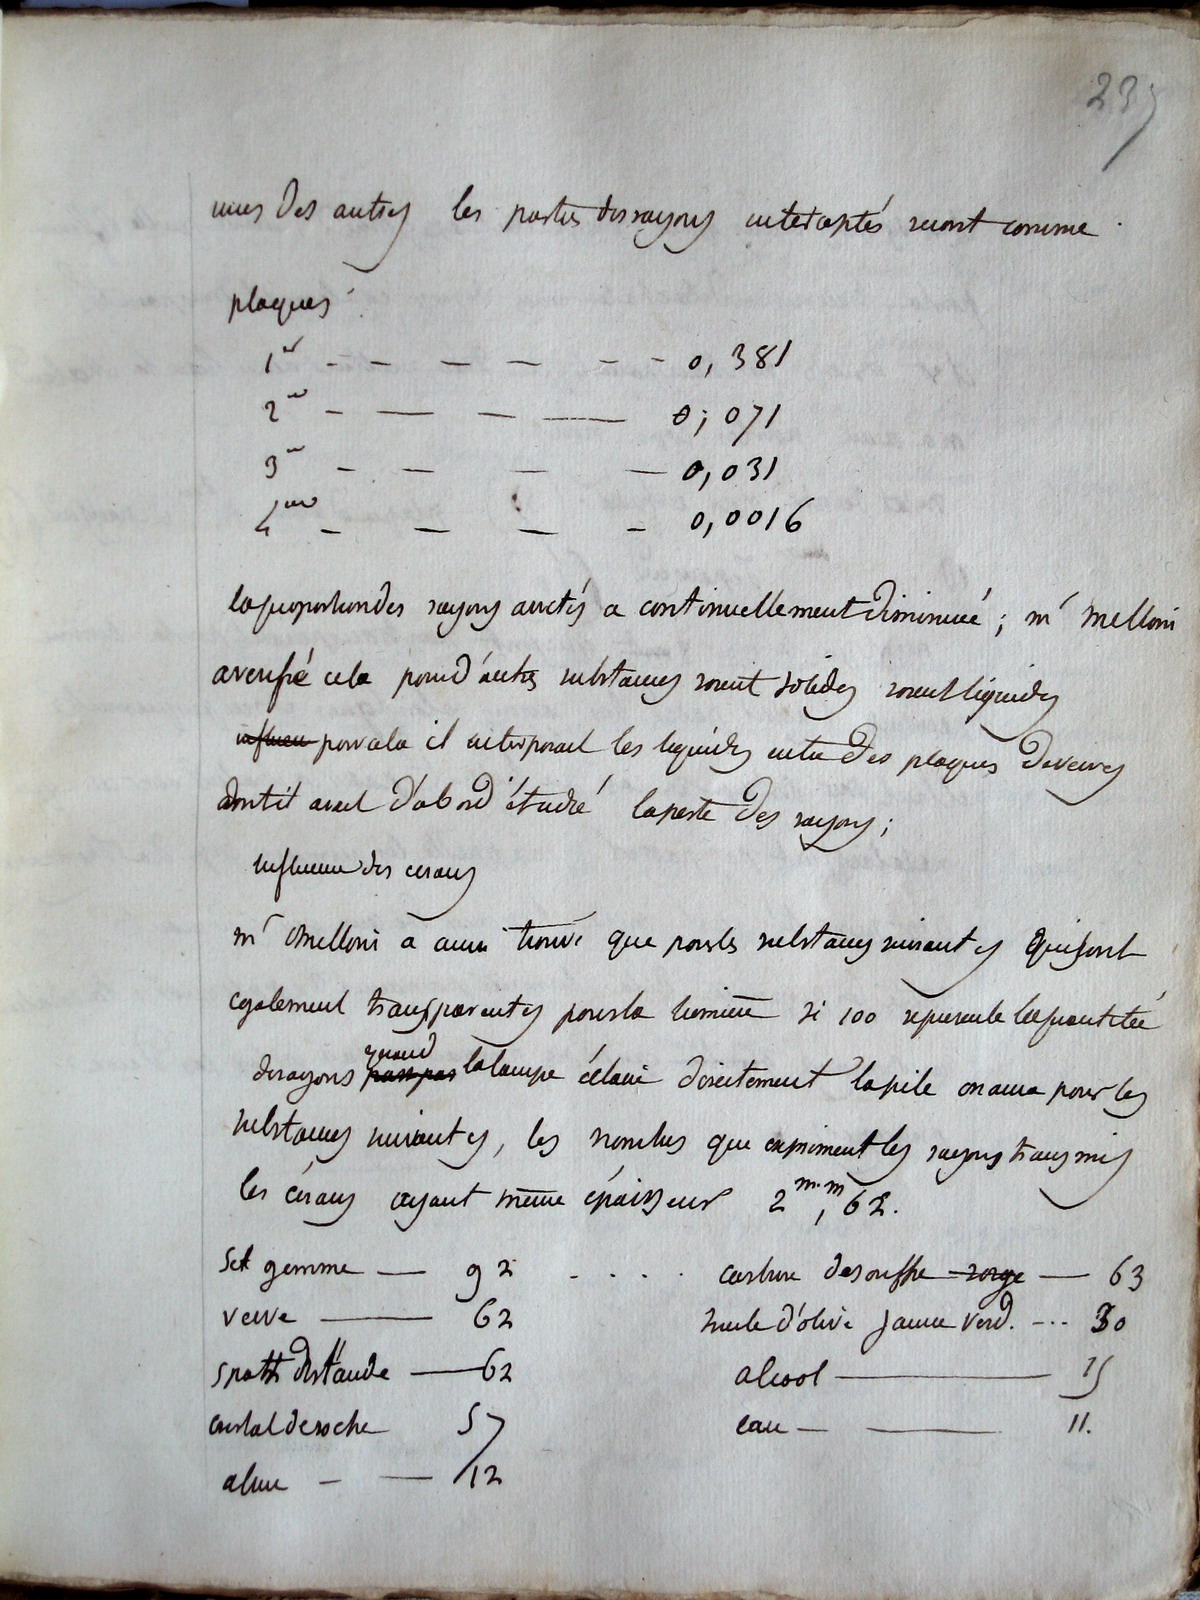 235
unes des autres les parties des rayons interceptés seront comme
plaques :
1re - - - - - - 0,381
2me - — — — 0,071
3me - - - — 0,031
4me - - - - 0,0016
la proportion des rayons arretés a continuellement diminuée ; mr Melloni
a verifié cela pour d'autres substances soient solides soient liquides
influen pour cela il interposait les liquides entre des plaques de verres
dont il avait d'abord étudié la perte des rayons ;
influence des ecrans
mr Melloni a aussi trouvé que pour les substances suivantes qui sont
egalement transparentes pour la lumière si 100 represente la quantitée
de rayons quand la lampe éclaire directement la pile on aura pour les
substances suivantes, les nombres que expriment les rayons transmis
les écrans ayant même épaisseur 2m.m,62.
Sel gemme — 92 . . . . carbure de souffre rouge — 63
verre — 62 huile d'olive jaune verd. - - - 30
spath d'Islande — 62 alcool — 15
cristal de roche 57 eau — — 11.
alun - — 12